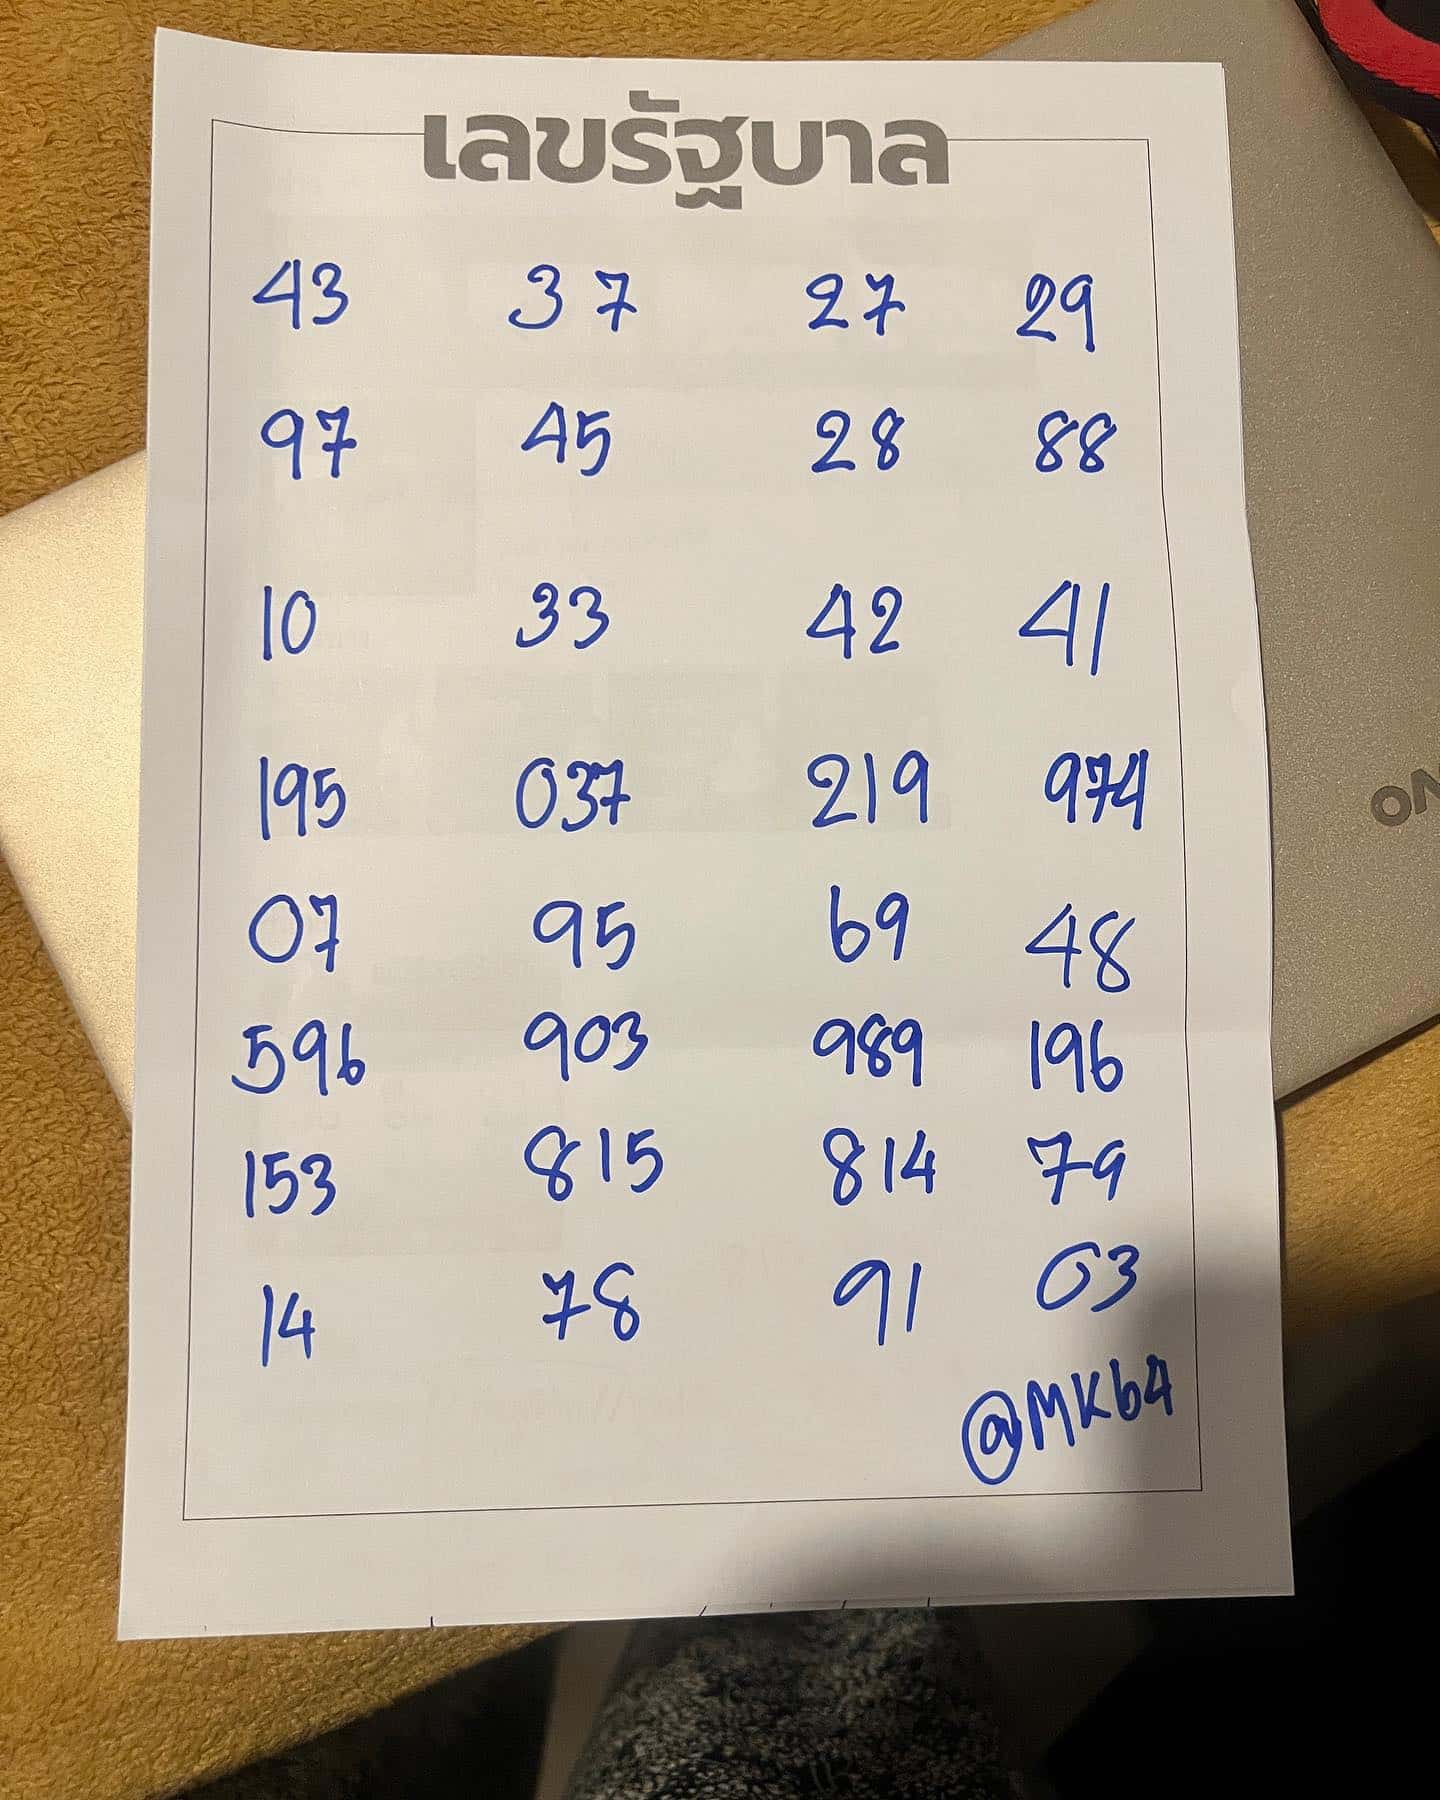 เลขรัฐบาล
43 37 27 29
97 45 28 88
10 33 42 41
195 037 219 974
07 95 69 48
596 903 989 196
153 815 814 79
14 78 91 03
@MK64